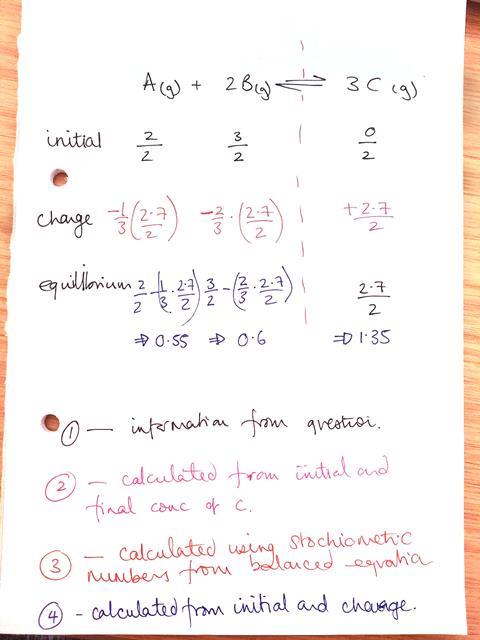 A(g) + 2B(g) ⇌ 3C(g)
initial 2/2 3/2 0/2
change -1/3(2.7/2) -2/3.(2.7/2) +2.7/2
equilibrium 2/2-(1/3.2.7/2) 3/2-(2/3.2.7/2) 2.7/2
⇒ 0.55 ⇒ 0.6 ⇒ 1.35
① — information from question.
② - calculated from initial and
final conc of C.
③ - calculated using stochiometric
numbers from balanced equation
④ - calculated from initial and change.